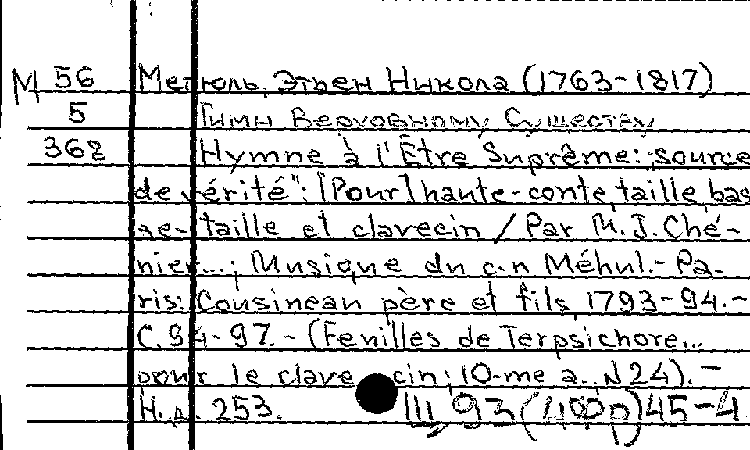 М 56 Мегюль, Этьен Никола (1763-1817)
5 Гимн Верховному Существу
362 Hymne à l'Être Suprême: "source
de vérité": [Pour] haute-conte, taille, bas
se-taille et clavecin / Par M. J. Ché-
nier...; Musique du c-n Méhul.- Pa-
ris: Cousineau père et fils, 1793-94.-
C. 94-97.- (Feuilles de Terpsichore...
pour le clavecin; 10-me a., N24).-
Н.д. 253. 93 45-4